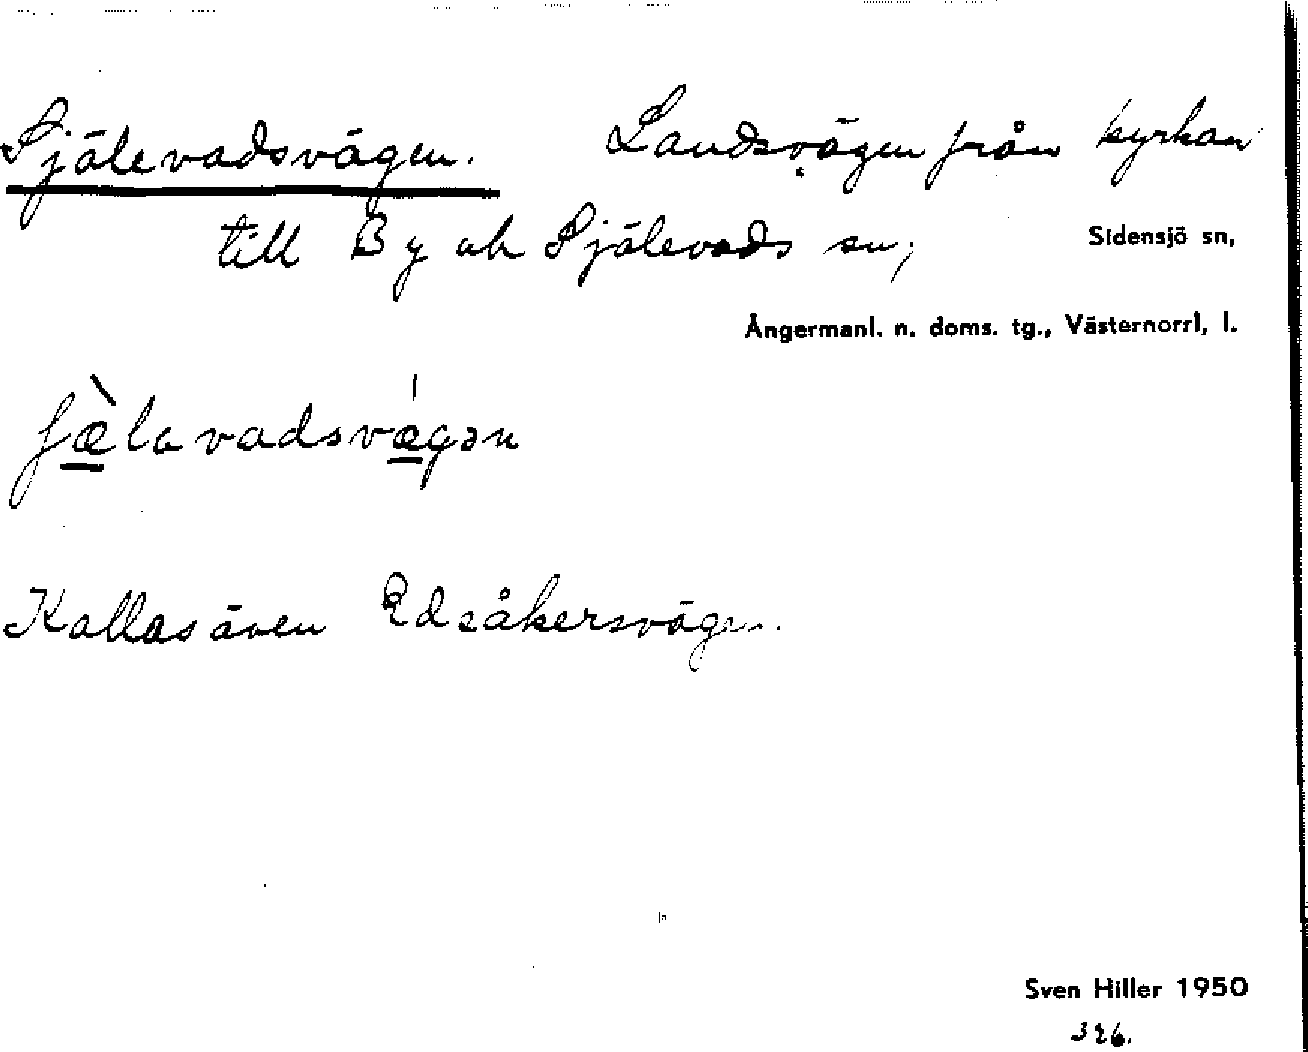 Själevadsvägen. Landsvägen från kyrkan
till By och Själevads sn,
Sidensjö sn,
Ångermanl. n. doms. tg., Västernorrl, l.
ʃæ̀lavadsvǽgən
Kallas även Edsåkersvägen.
Sven Hiller 1950
326.